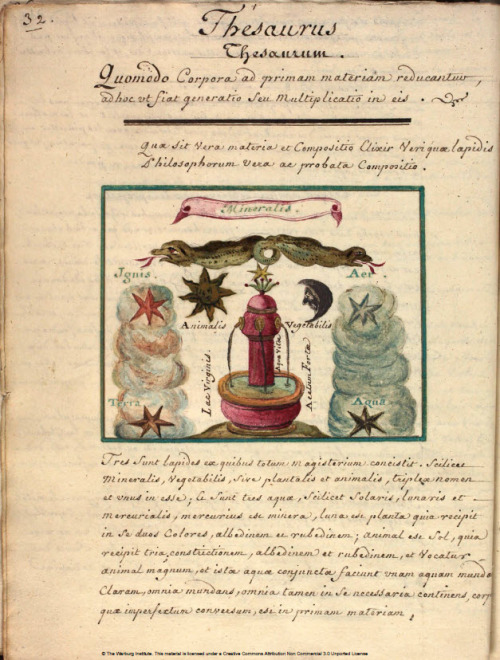 32.
Thesaurus
Thesaurum.
Quomodo Corpora ad primam materiam reducantur,
ad hoc vt fiat generatio seu multiplicatio in eis.
Quæ sit vera materia et Compositio Elixir Veri quæ lapidis
Philosophorum vera ac probata Compositio.
Mineralis.
Ignis.
Aer.
Animalis
Vegetabilis
Lac Virginis.
Aqua Vitæ
Acetum Fortæ
Terra
Aqua
Tres sunt lapides ex quibus totum magisterium concistit. Scilicet
mineralis, Vegetabilis, sive plantalis et animalis, triplex nomen
et vnus in esse; & sunt tres aquæ, scilicet solaris, lunaris et
mercurialis, mercurius est minera, luna est planta quia recipit
in se duos Colores, albedinem et rubedinem; animal est sol, quia
recipit tria, constrictionem, albedinem et rubedinem, et vocatur
animal magnum, et istæ aquæ conjunctæ faciunt vnam aquam munda
Claram, omnia mundans, omnia tamen in se necessaria continens, corp
quæ imperfectum conversum, est in primam materiam.
© The Warburg Institute. This material is licensed under a Creative Commons Attribution Non Commercial 3.0 Unported License